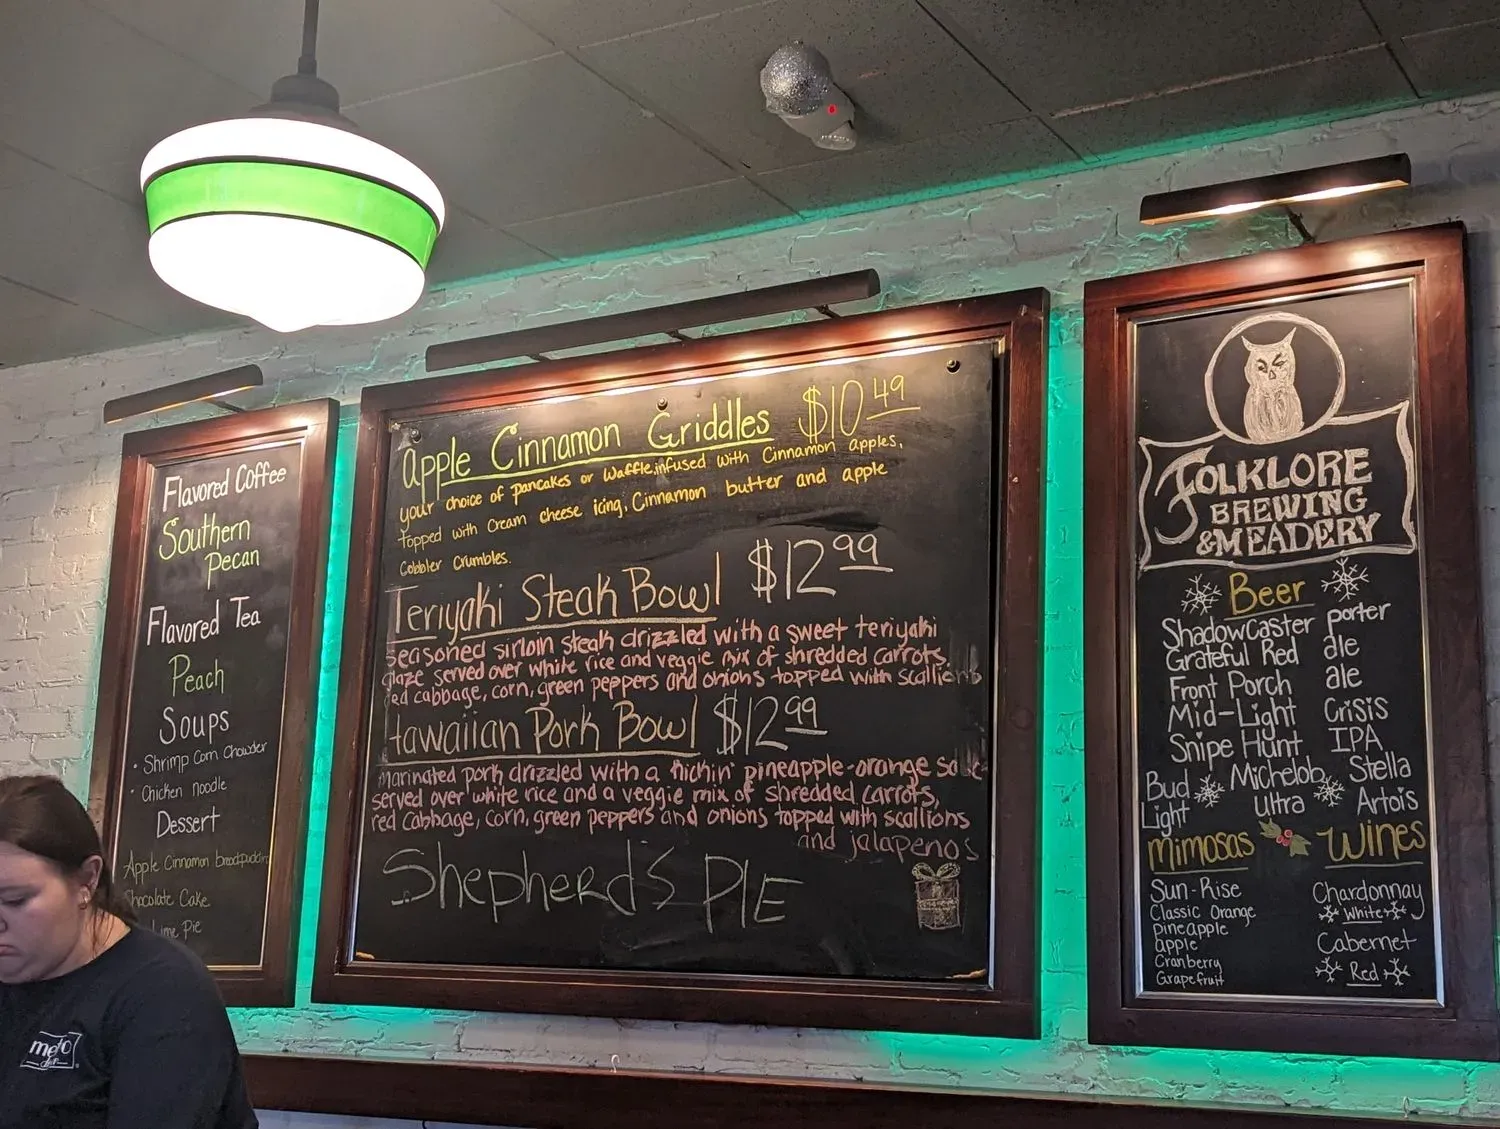 Flavored Coffee
Southern
Pecan
Flavored Tea
Peach
Soups
• Shrimp Corn Chowder
• Chicken noodle
Dessert
Apple Cinnamon breadpuddin
Chocolate Cake
Lime Pie
Apple Cinnamon Griddles $10.49
your choice of pancakes or Waffle, infused with Cinnamon apples,
Topped with Cream cheese icing, Cinnamon butter and apple
Cobbler Crumbles.
Teriyaki Steak Bowl $12.99
seasoned sirloin steak drizzled with a sweet teriyaki
glaze served over white rice and veggie mix of shredded carrots,
red cabbage, corn, green peppers and onions topped with scallions
Hawaiian Pork Bowl $12.99
marinated pork drizzled with a kickin' pineapple-orange
served over white rice and a veggie mix of shredded carrots,
red cabbage, corn, green peppers and onions topped with scallions
and jalapenos
Shepherd's PIE
FOLKLORE
BREWING
& MEADERY
Beer
Shadowcaster porter
Grateful Red ale
Front Porch ale
Mid-Light Crisis
Snipe Hunt IPA
Bud Light
Michelob Ultra
Stella Artois
Mimosas
Sun-Rise
Classic Orange
pineapple
apple
Cranberry
Grapefruit
Wines
Chardonnay
White
Cabernet
Red
metro
diner